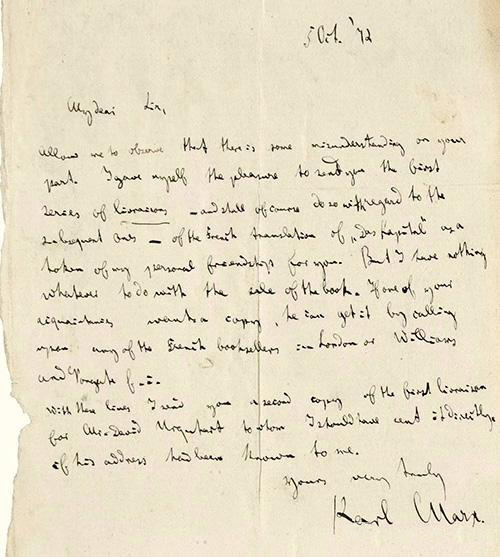 5 Oct. '72
My dear Sir,
Allow me to observe that there is some misunderstanding on your
part. I gave myself the pleasure to send you the first
series of livraisons – and shall of course do so with regard to the
subsequent ones – of the French translation of „Das Kapital" as a
token of my personal friendship for you. But I have nothing
whatever to do with the sale of the book. If one of your
acquaintances wants a copy, he can get it by calling
upon any of the French booksellers in London or Williams
and Norgate
With these lines I send you a second copy of the first livraison
for Mr. David Urquhart to whom I should have sent it directly
if his address had been known to me.
Yours very truly
Karl Marx.